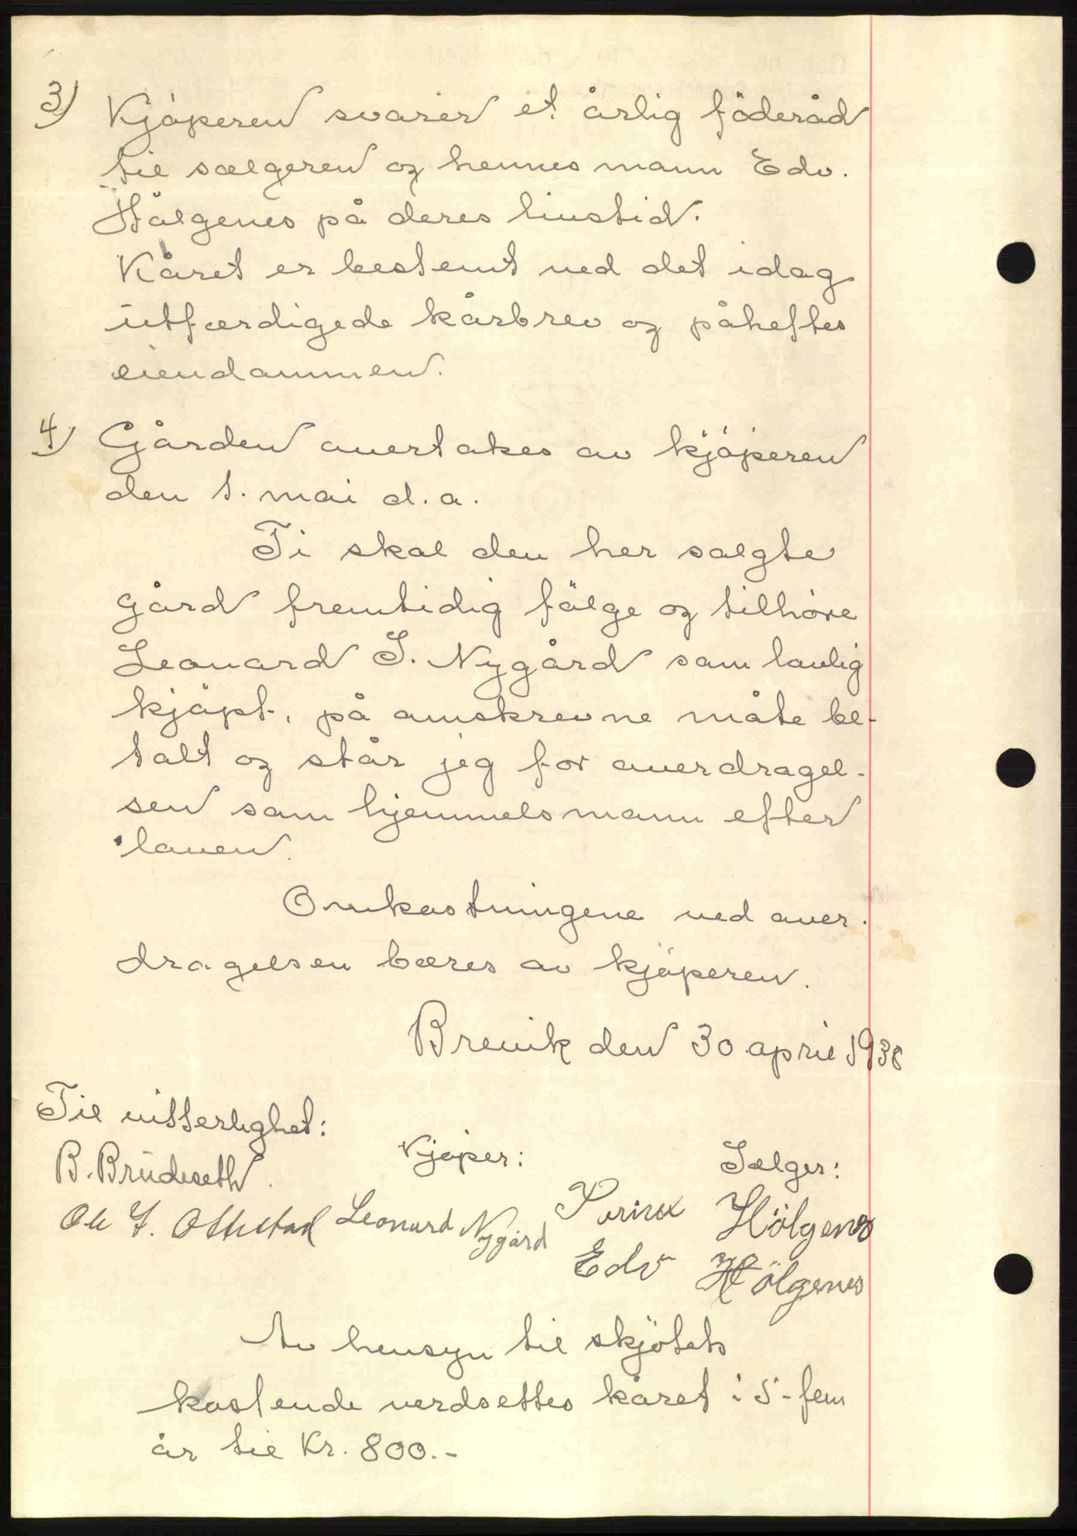 3) Kjöperen svarer et årlig föderåd
til sælgeren og hennes mann Edv.
Hölgenes på deres livstid.
Kåret er bestemt ved det idag
utfærdigede kårbrev og påheftes
eiendommen.
4) Gården overtakes av kjöperen
den 1. mai d.a.
Ti skal den her solgte
gård fremtidig fölge og tilhöre
Leonard S. Nygård som lovlig
kjöpt, på omskrevne måte be-
talt og står jeg for overdragel-
sen som hjemmelsmann efter
loven.
Omkostningene ved over-
dragelsen bæres av kjöperen.
Brevik den 30 april 1938
Til vitterlighet:
B. Brüdeseth.
Kjöper:
Sælger:
Leonard Nygård
Hölgenes
Edv Hölgenes
Av hensyn til skjötets
kostende verdsettes kåret i 5-fem
år til Kr. 800.-